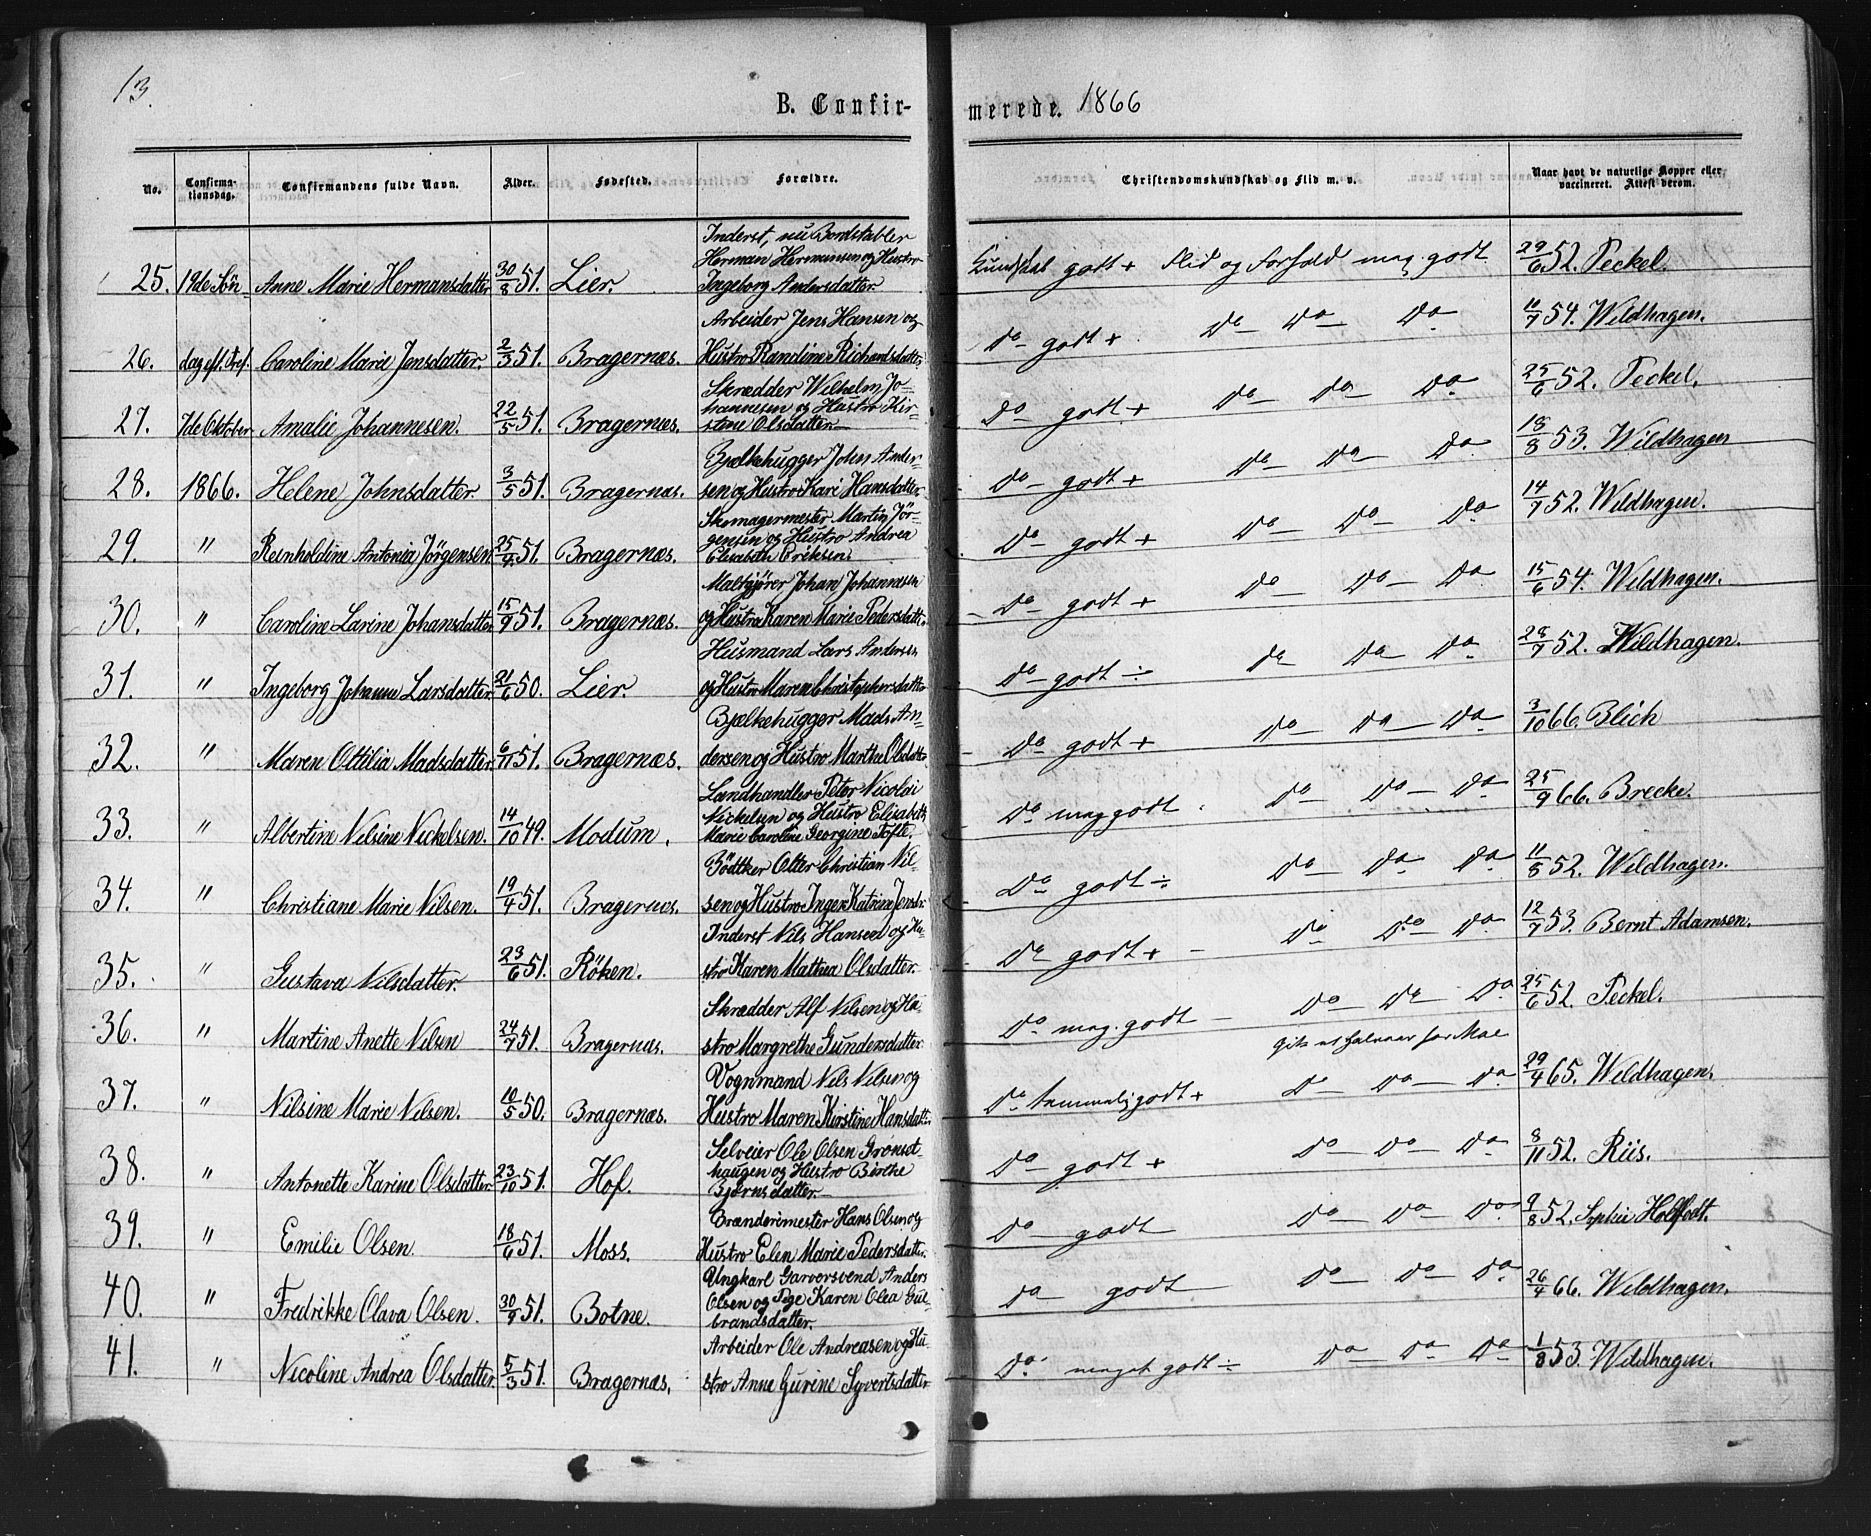 13.
B. Confirmerede. 1866
No. Confirmationsdag. Confirmandens fulde Navn. Alder. Fødested. Forældre. Christendomskundskab og Flid m. v. Naar havt de naturlige Kopper eller vaccineret. Attest derom.
25. 19de Søn- Anne Marie Hermansdatter 30/8 51. Lier. Inderst, nu Bordstabler Herman Hermansen og Hustro Ingeborg Andersdatter. Kundskab godt + Flid og Forhold meg. godt 29/6 52. Peckel.
26. dag eft. Tref. Caroline Marie Jensdatter. 2/3 51. Bragernæs. Arbeider Jens Hansen og Hustro Randine Richardsdatter. Do godt + Do Do Do 11/7 54. Wildhagen.
27. 7de Oktober Amalie Johannesen. 22/5 51. Bragernæs. Skrædder Wilhelm Johannesen og Hustro Kirstine Olsdatter Do godt + Do Do Do 25/6 52. Peckel.
28. 1866. Helene Johnsdatter 3/5 51. Bragernæs. Bjælkehugger John Andersen og Hustro Kari Hansdatter. Do godt + Do Do Do 18/8 53. Wildhagen
29. " Reinholdine Antonia Jørgensen 25/4 51. Bragernæs. Skomagermester Martin Jørgensen og Hustro Andrea Elisabeth Eriksen. Do godt + Do Do Do 14/7 52. Wildhagen.
30. " Caroline Larine Johansdatter 15/9 51. Bragernæs. Maltgjører Johan Johannesen og Hustro Karen Marie Pedersdatt. Do godt + Do Do Do 15/6 54. Wildhagen.
31. " Ingeborg Johanne Larsdatter 21/6 50. Lier. Husmand Lars Andersen og Hustro Maren Christophersdatter Do godt ÷ Do Do Do 28/7 52. Wildhagen.
32. " Maren Ottilia Madsdatter 6/11 51. Bragernæs. Bjælkehugger Mads Andersen og Hustro Marthe Olsdatter Do godt + Do Do Do 3/10 66. Blich
33. " Albertine Nilsine Nickelsen. 14/10 49. Modum. Landhandler Peter Nicolai Nickelsen og Hustro Elisabeth Marie Caroline Georgine Tofte. Do meg godt Do Do Do 25/9 66. Brecke.
34. " Christiane Marie Nilsen. 19/4 51. Bragernæs. Bødtker Otter Christian Nilsen og Hustro Inger Katrine Jensdr. Do godt ÷ Do Do Do 11/8 52. Wildhagen.
35. " Gustava Nilsdatter. 23/6 51. Røken. Inderst Nils Hansen og Hustro Karen Mathea Olsdatter. Do godt + Do Do Do 12/7 53. Bernt Adamsen.
36. " Martine Anette Nilsen 24/7 51. Bragernæs. Skrædder Alf Nilsen og Hustro Margrethe Gundersdatter Do meg. godt Do Do Do 25/6 52. Peckel.
37. " Nilsine Marie Nilsen. 10/5 50. Bragernæs. Vognmand Nils Nilsen og Hustro Maren Kirstine Hansdatt. Do temmelig godt + Do Do Do 29/4 65. Wildhagen.
38. " Antonette Karine Olsdatter 23/10 51. Hof. Selveier Ole Olsen Grønsethaugen og Hustro Birthe Bjørnsdatter. Do godt + Do Do Do 8/11 52. Riis.
39. " Emilie Olsen. 18/6 51. Moss. Brænderimester Hans Olsen og Hustro Elen Marie Pedersdatter. Do godt Do Do Do 9/8 52. Sophie Holfeldt.
40. " Fredrikke Olava Olsen. 30/9 51. Botne. Ungkarl Garversvend Anders Olsen og Pige Karen Olea Gulbrandsdatter. Do godt Do Do Do 26/4 66. Wildhagen.
41. " Nicoline Andrea Olsdatter. 5/3 51. Bragernæs. Arbeider Ole Andreasen og Hustro Anne Gurine Syvertsdatter Do meget godt ÷ Do Do Do 1/8 53. Wildhagen.